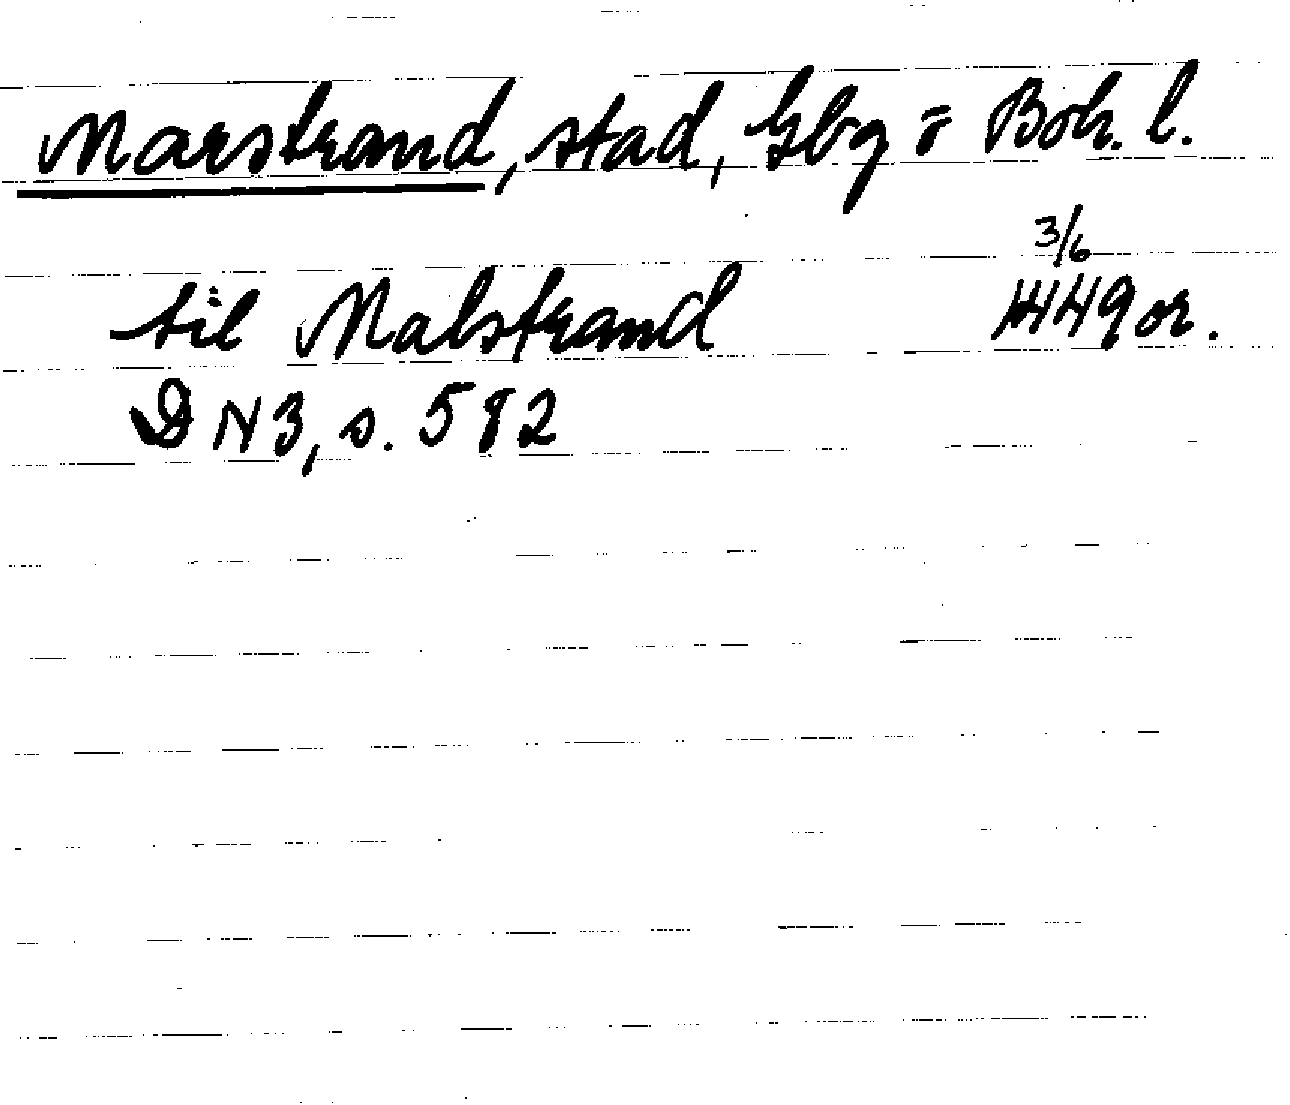 Marstrand, stad, Gbg o Boh. l.
3/6
til Malstrand 1449 or.
DN3, s. 582